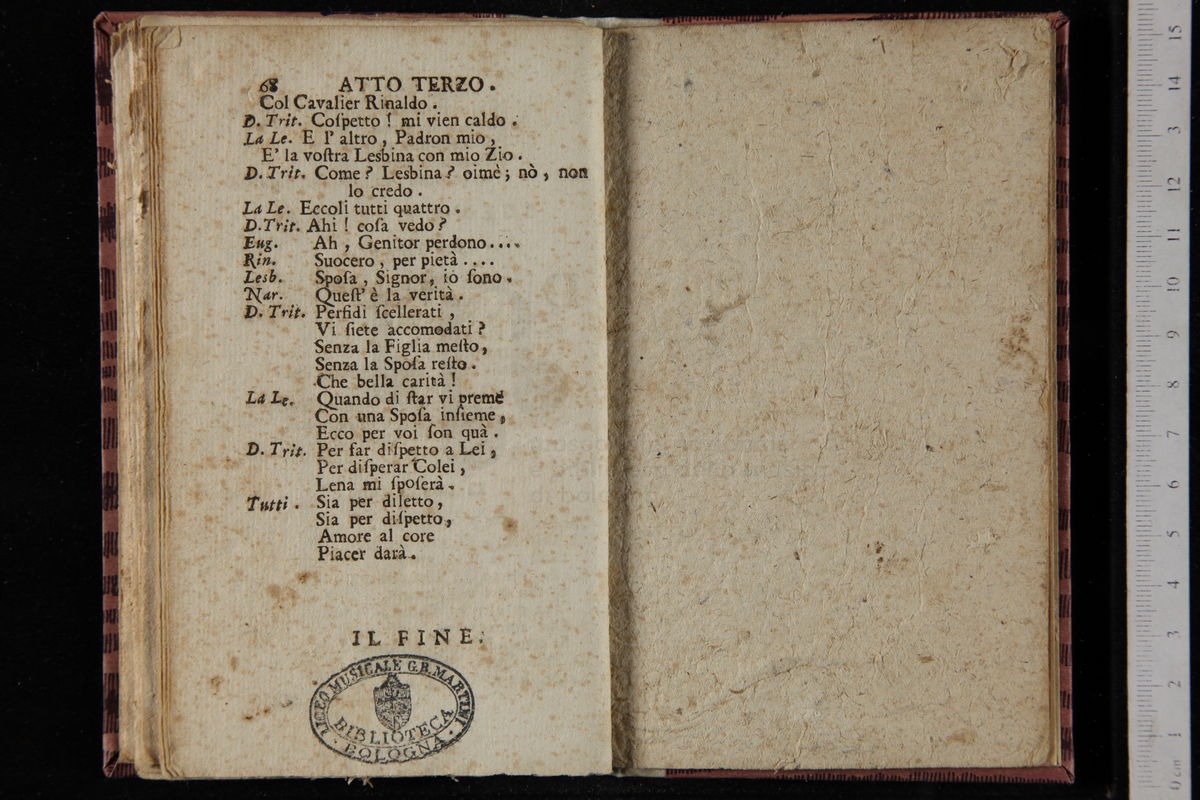 68 ATTO TERZO.
Col Cavalier Rinaldo.
D. Trit. Coſpetto! mi vien caldo.
La Le. E l'altro, Padron mio,
E' la voſtra Lesbina con mio Zio.
D. Trit. Come? Lesbina? oimè; nò, non
lo credo.
La Le. Eccoli tutti quattro.
D. Trit. Ahi! coſa vedo?
Eug. Ah, Genitor perdono....
Rin. Suocero, per pietà....
Lesb. Spoſa, Signor, io ſono.
Nar. Queſt' è la verità.
D. Trit. Perfidi ſcellerati,
Vi ſiete accomodati?
Senza la Figlia meſto,
Senza la Spoſa reſto.
Che bella carità!
La Le. Quando di ſtar vi preme
Con una Spoſa inſieme,
Ecco per voi ſon quà.
D. Trit. Per far diſpetto a Lei,
Per diſperar Colei,
Lena mi ſpoſerà.
Tutti. Sia per diletto,
Sia per diſpetto,
Amore al core
Piacer darà.
IL FINE.
LICEO MUSICALE G.B. MARTINI
BIBLIOTECA
BOLOGNA
15
14
13
12
11
10
9
8
7
6
5
4
3
2
1
0 cm